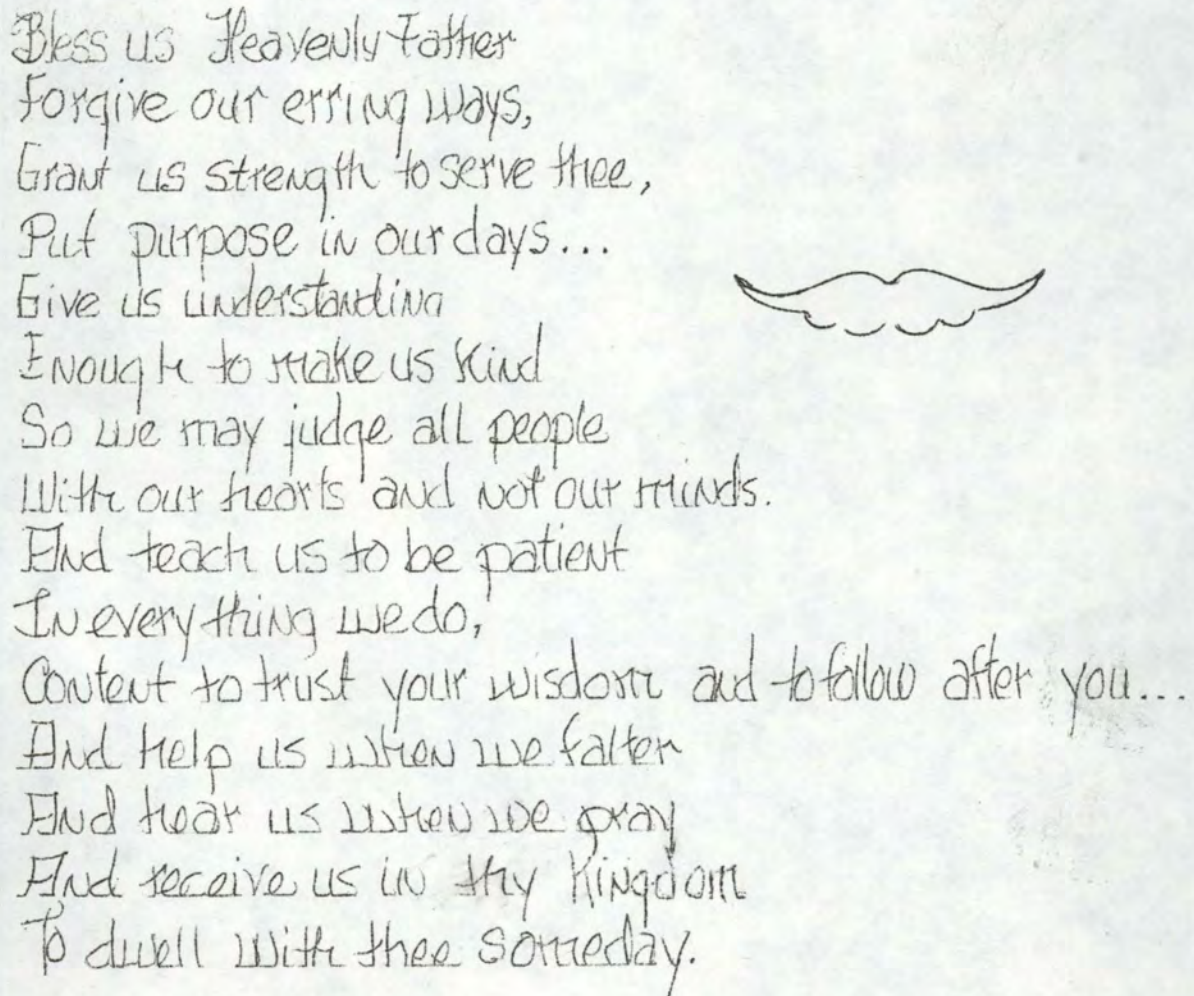 Bless us Heavenly Father
Forgive our erring ways,
Grant us strength to serve thee,
Put purpose in our days...
Give us understanding
Enough to make us kind
So we may judge all people
With our hearts and not our minds.
And teach us to be patient
In everything we do,
Content to trust your wisdom and to follow after you...
And help us when we falter
And hear us when we pray
And receive us in thy Kingdom
To dwell with thee someday.